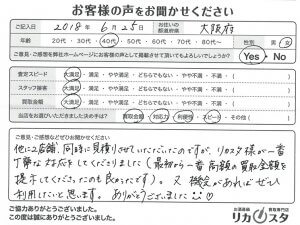 お客様の声をお聞かせください
ご記入日 2018年6月25日 お住いの都道府県 大阪府
年齢 20代・30代・40代・50代・60代・70代・80代〜 性別 男・女
ご意見・ご感想を弊社ホームページにお客様の声として掲載させて頂いてもよろしいでしょうか? Yes・No
査定スピード 大満足・満足・やや満足・どちらでもない・やや不満・不満
スタッフ接客 大満足・満足・やや満足・どちらでもない・やや不満・不満
買取金額 大満足・満足・やや満足・どちらでもない・やや不満・不満
当店をお選びいただきました決め手は? 買取金額・対応力・利便性・スピード・その他( )
ご意見・ご感想などぜひお聞かせください。
他に2店舗、同時に見積りさせていただいたのですが、リカスタ様が一番
丁寧な対応をしてくださりました(最初から一番高額の買取金額を
提示してくださったのも良かったです)。又機会があればぜひ
利用したいと思います。ありがとうございました
ご協力ありがとうございました。
この度は誠にありがとうございました。
お酒買取専門店
リカスタ